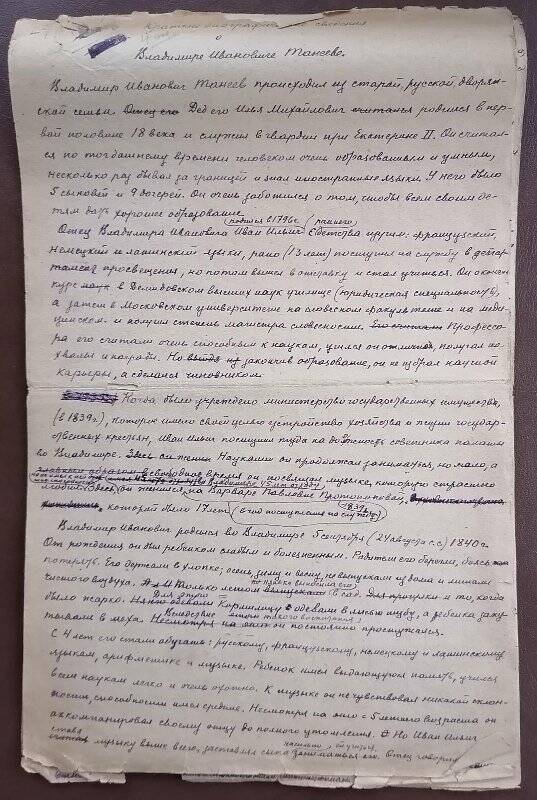 Краткие биографические сведения
о
Владимире Ивановиче Танееве.
Владимир Иванович Танеев происходил из старой, русской, дворян-
ской семьи. Отец его Дед его Илья Михайлович считался родился в пер-
вой половине 18 века и служил в гвардии при Екатерине II. Он считал-
ся по тогдашнему времени человеком очень образованным и умным,
несколько раз бывал за границей и знал иностранные языки. У него было
5 сыновей и 9 дочерей. Он очень заботился о том, чтобы всем своим де-
тям дать хорошее образование.
(родился в 1796 г.) (раннего)
Отец Владимира Ивановича Иван Ильич с детства изучил: французский,
немецкий и латинский языки, рано (13 лет) поступил на службу в депар-
тамент просвещения, но потом вышел в отставку и стал учиться. Он окончил
курс наук в Демидовском высших наук училище (юридическая специальность),
а затем в Московском университете на словесном факультете и на меди-
цинском и получил степень магистра словесности. Его считали Професо-
ра его считали очень способным к наукам, учился он отлично, получал по-
хвалы и награды. Но выйдя из закончив образование, он не избрал научной
карьеры, а сделался чиновником.
Когда было учреждено министерство государственных имуществ,
(в 1839 г.), которое имело своей целью устройство хозяйства и жизни государ-
ственных крестьян, Иван Ильич поступил туда на должность советника палаты
во Владимире. Здесь служил Науками он продолжал заниматься, но мало, а
главным образом свободное время он посвящал музыке, которую страстно
любил. Здесь он женился на Варваре Павловне Протопоповой,
1839
которой было 17 лет (в год поступления на службу)
Владимир Иванович родился во Владимире 5 сентября (24 августа с.с) 1840 г.
От рождения он был ребенком слабым и болезненным. Родители его берегли, боясь
потерять. Его держали в хлопке; осень, зиму и весну, не выпускали из дома и лишали
чистого воздуха. Только летом выпускали в сад. и то, когда
было жарко. Кормилицу одевали в лисью шубу, а ребенка заку-
Вследствие такого воспитания,
тывали в меха. Несмотря на это он постоянно простужался.
С 4 лет его стали обучать: русскому, французскому, немецкому и латинскому
языкам, арифметике и музыке. Ребенок имел выдающуюся память, учился
всем наукам легко и очень охотно. К музыке он не чувствовал никакой склон-
ности, способности имел средние. Несмотря на это с 5 летнего возраста он
аккомпанировал своему отцу до полного утомления. Но Иван Ильич
ставя
считал музыку выше всего, заставлял сына заниматься ею. Отец говорил